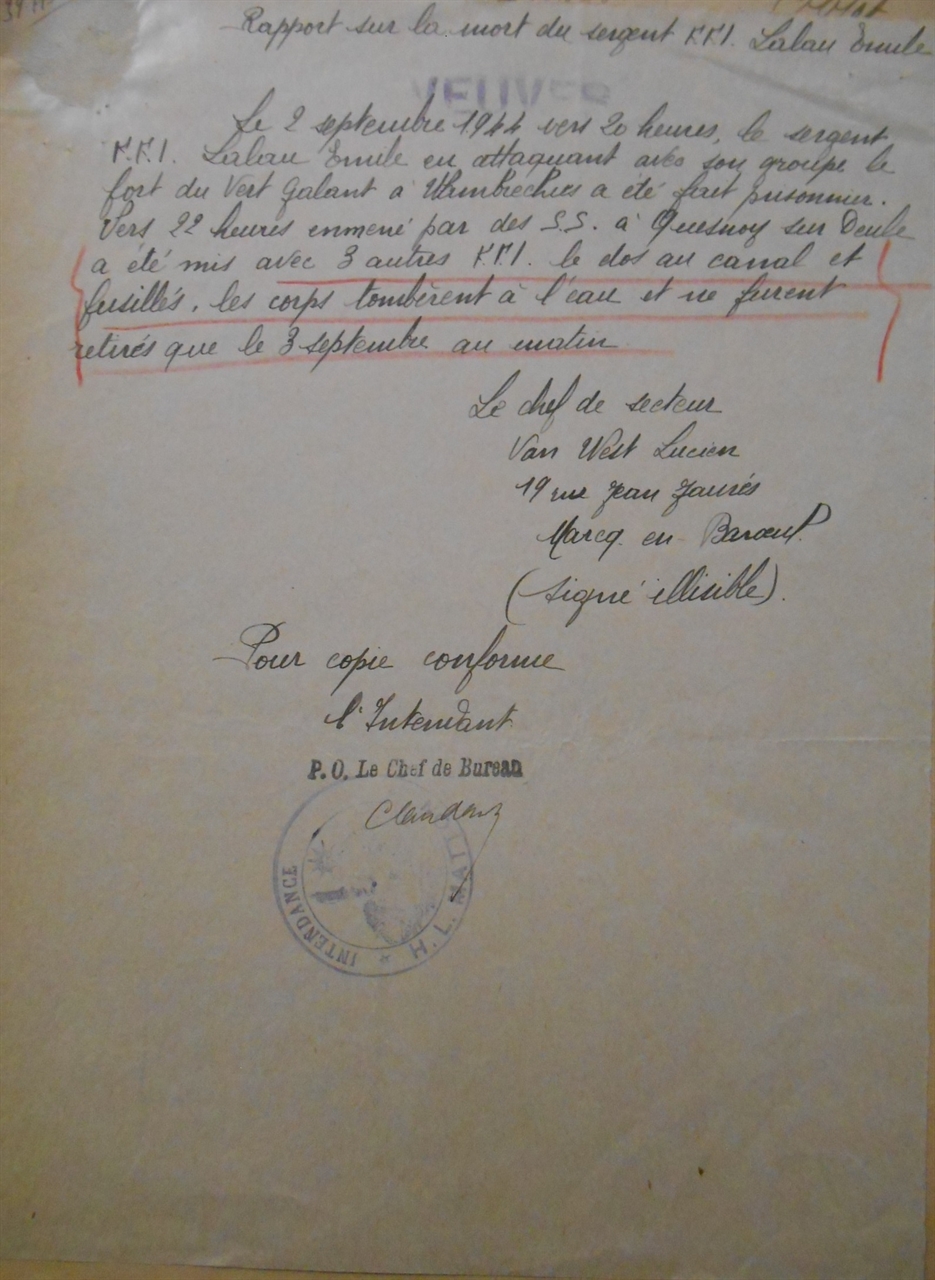 Rapport sur la mort du sergent F.F.I. Lalau Emile
VEUVES
Le 2 septembre 1944 vers 20 heures, le sergent
F.F.I. Lalau Emile en attaquant avec son groupe le
fort du Vert Galant à Wambrechies a été fait prisonnier.
Vers 22 heures emmené par des S.S. à Quesnoy sur Deule
a été mis avec 3 autres F.F.I. le dos au canal et
fusillés, les corps tombèrent à l'eau et ne furent
retirés que le 3 septembre au matin
Le chef de secteur
Van West Lucien
19 rue Jean Jaurés
Marcq en Baroeul
(signé illisible).
Pour copie conforme
l'Intendant
P.O. Le Chef de Bureau
INTENDANCE * H. L.